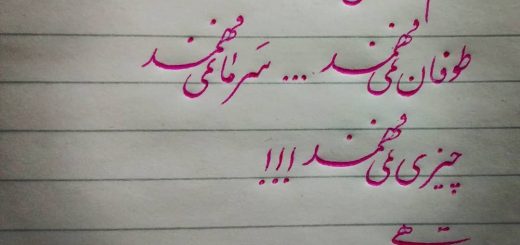 طوفان نمی فهمند ... سَرما نمی فهمند
چیزی نمی فهمند !!!